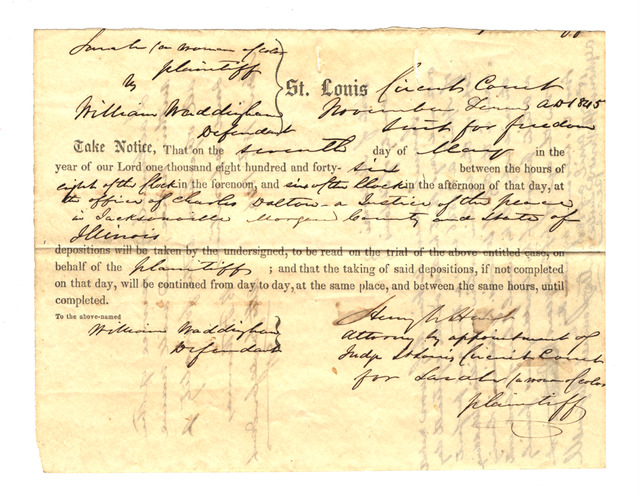 Sarah (a woman of color
plaintiff
vs
William Waddingham
Defendant
St. Louis Circuit Court
November Term A.D. 1845
Suit for freedom
Take Notice, That on the seventh day of May in the
year of our Lord one thousand eight hundred and forty- six between the hours of
eight of the Clock in the forenoon, and six of the Clock in the afternoon of that day, at
the office of Charles Dalton - a Justice of the peace
in Jacksonville Morgan County and State of
Illinois
depositions will be taken by the undersigned, to be read on the trial of the above entitled case, on
behalf of the plaintiff ; and that the taking of said depositions, if not completed
on that day, will be continued from day to day, at the same place, and between the same hours, until
completed.
To the above-named
William Waddingham
Defendant
Henry
Attorney by appointment of
Judge St Louis Circuit Court
for Sarah (a woman of color
plaintiff